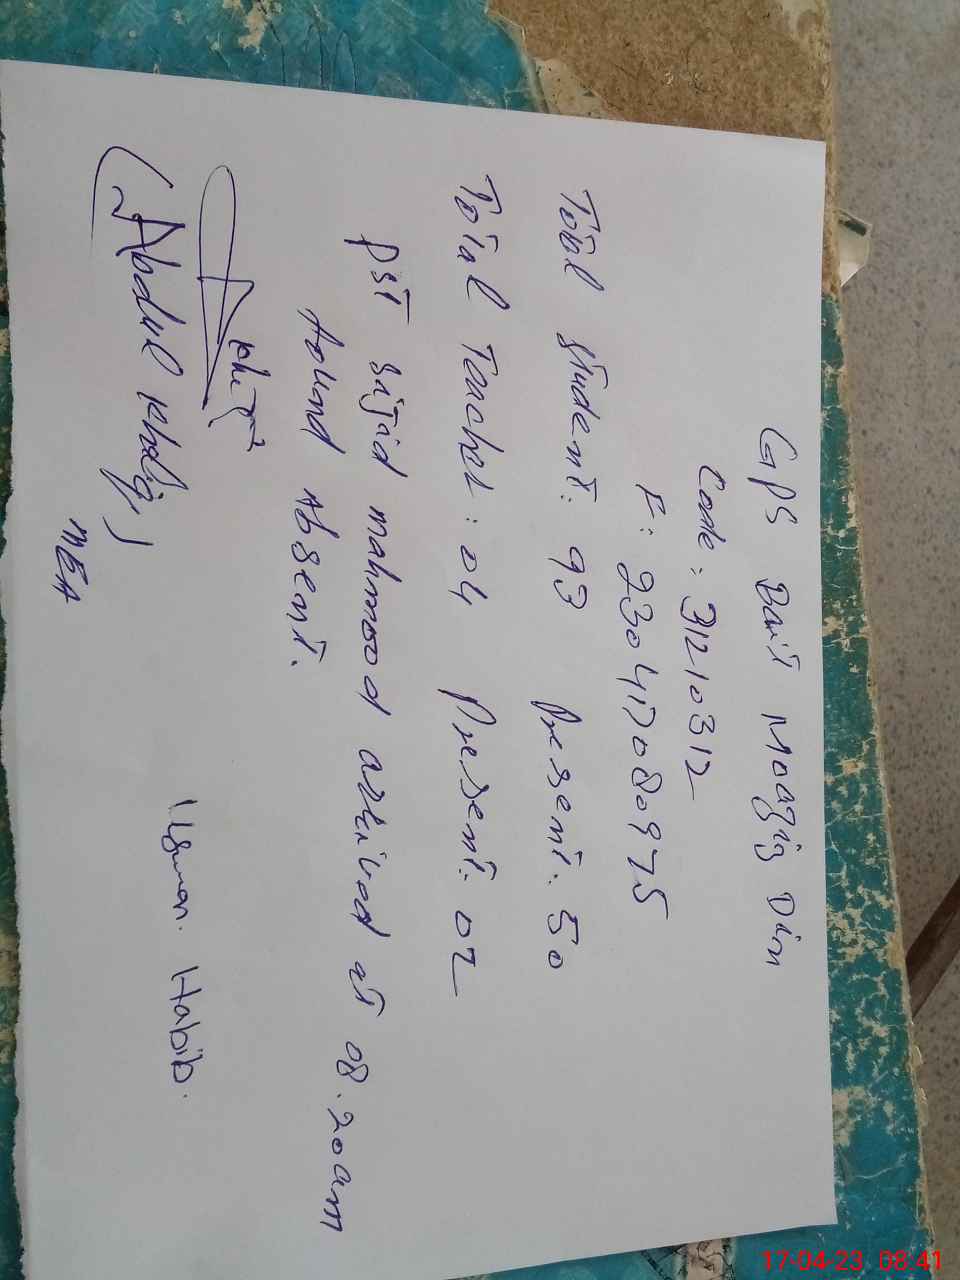 GPS Bast Moazig Din
Code: 31210312
F: 230417080975
Total student: 93 Present: 50
Total Teacher: 04 Present: 02
PST Sajid mahmood arrived at 08.20am
Aound Absent.
(Abdul Khaliq)
MEA
Usman Habib.
17-04-23 08:41